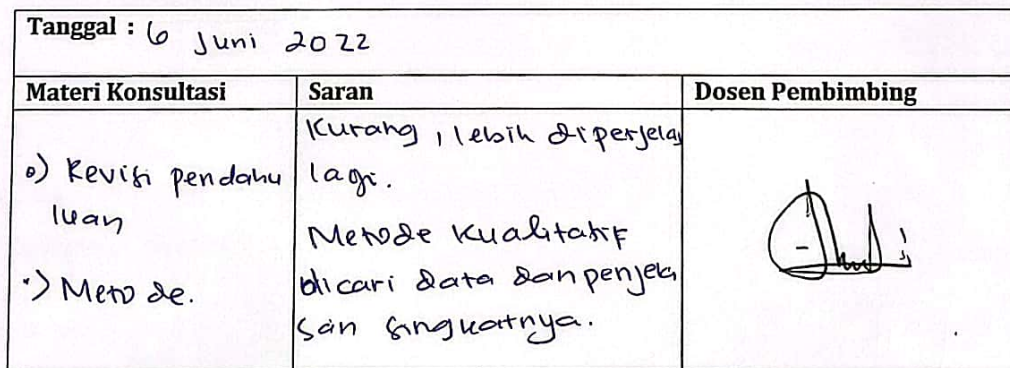 Tanggal : 6 Juni 2022
Materi Konsultasi
Saran
Dosen Pembimbing
o) Revisi pendahu
luan
·) Metode.
Kurang, lebih diperjelas
lagi.
Metode kualitatif
dicari data dan penjela
san singkatnya.